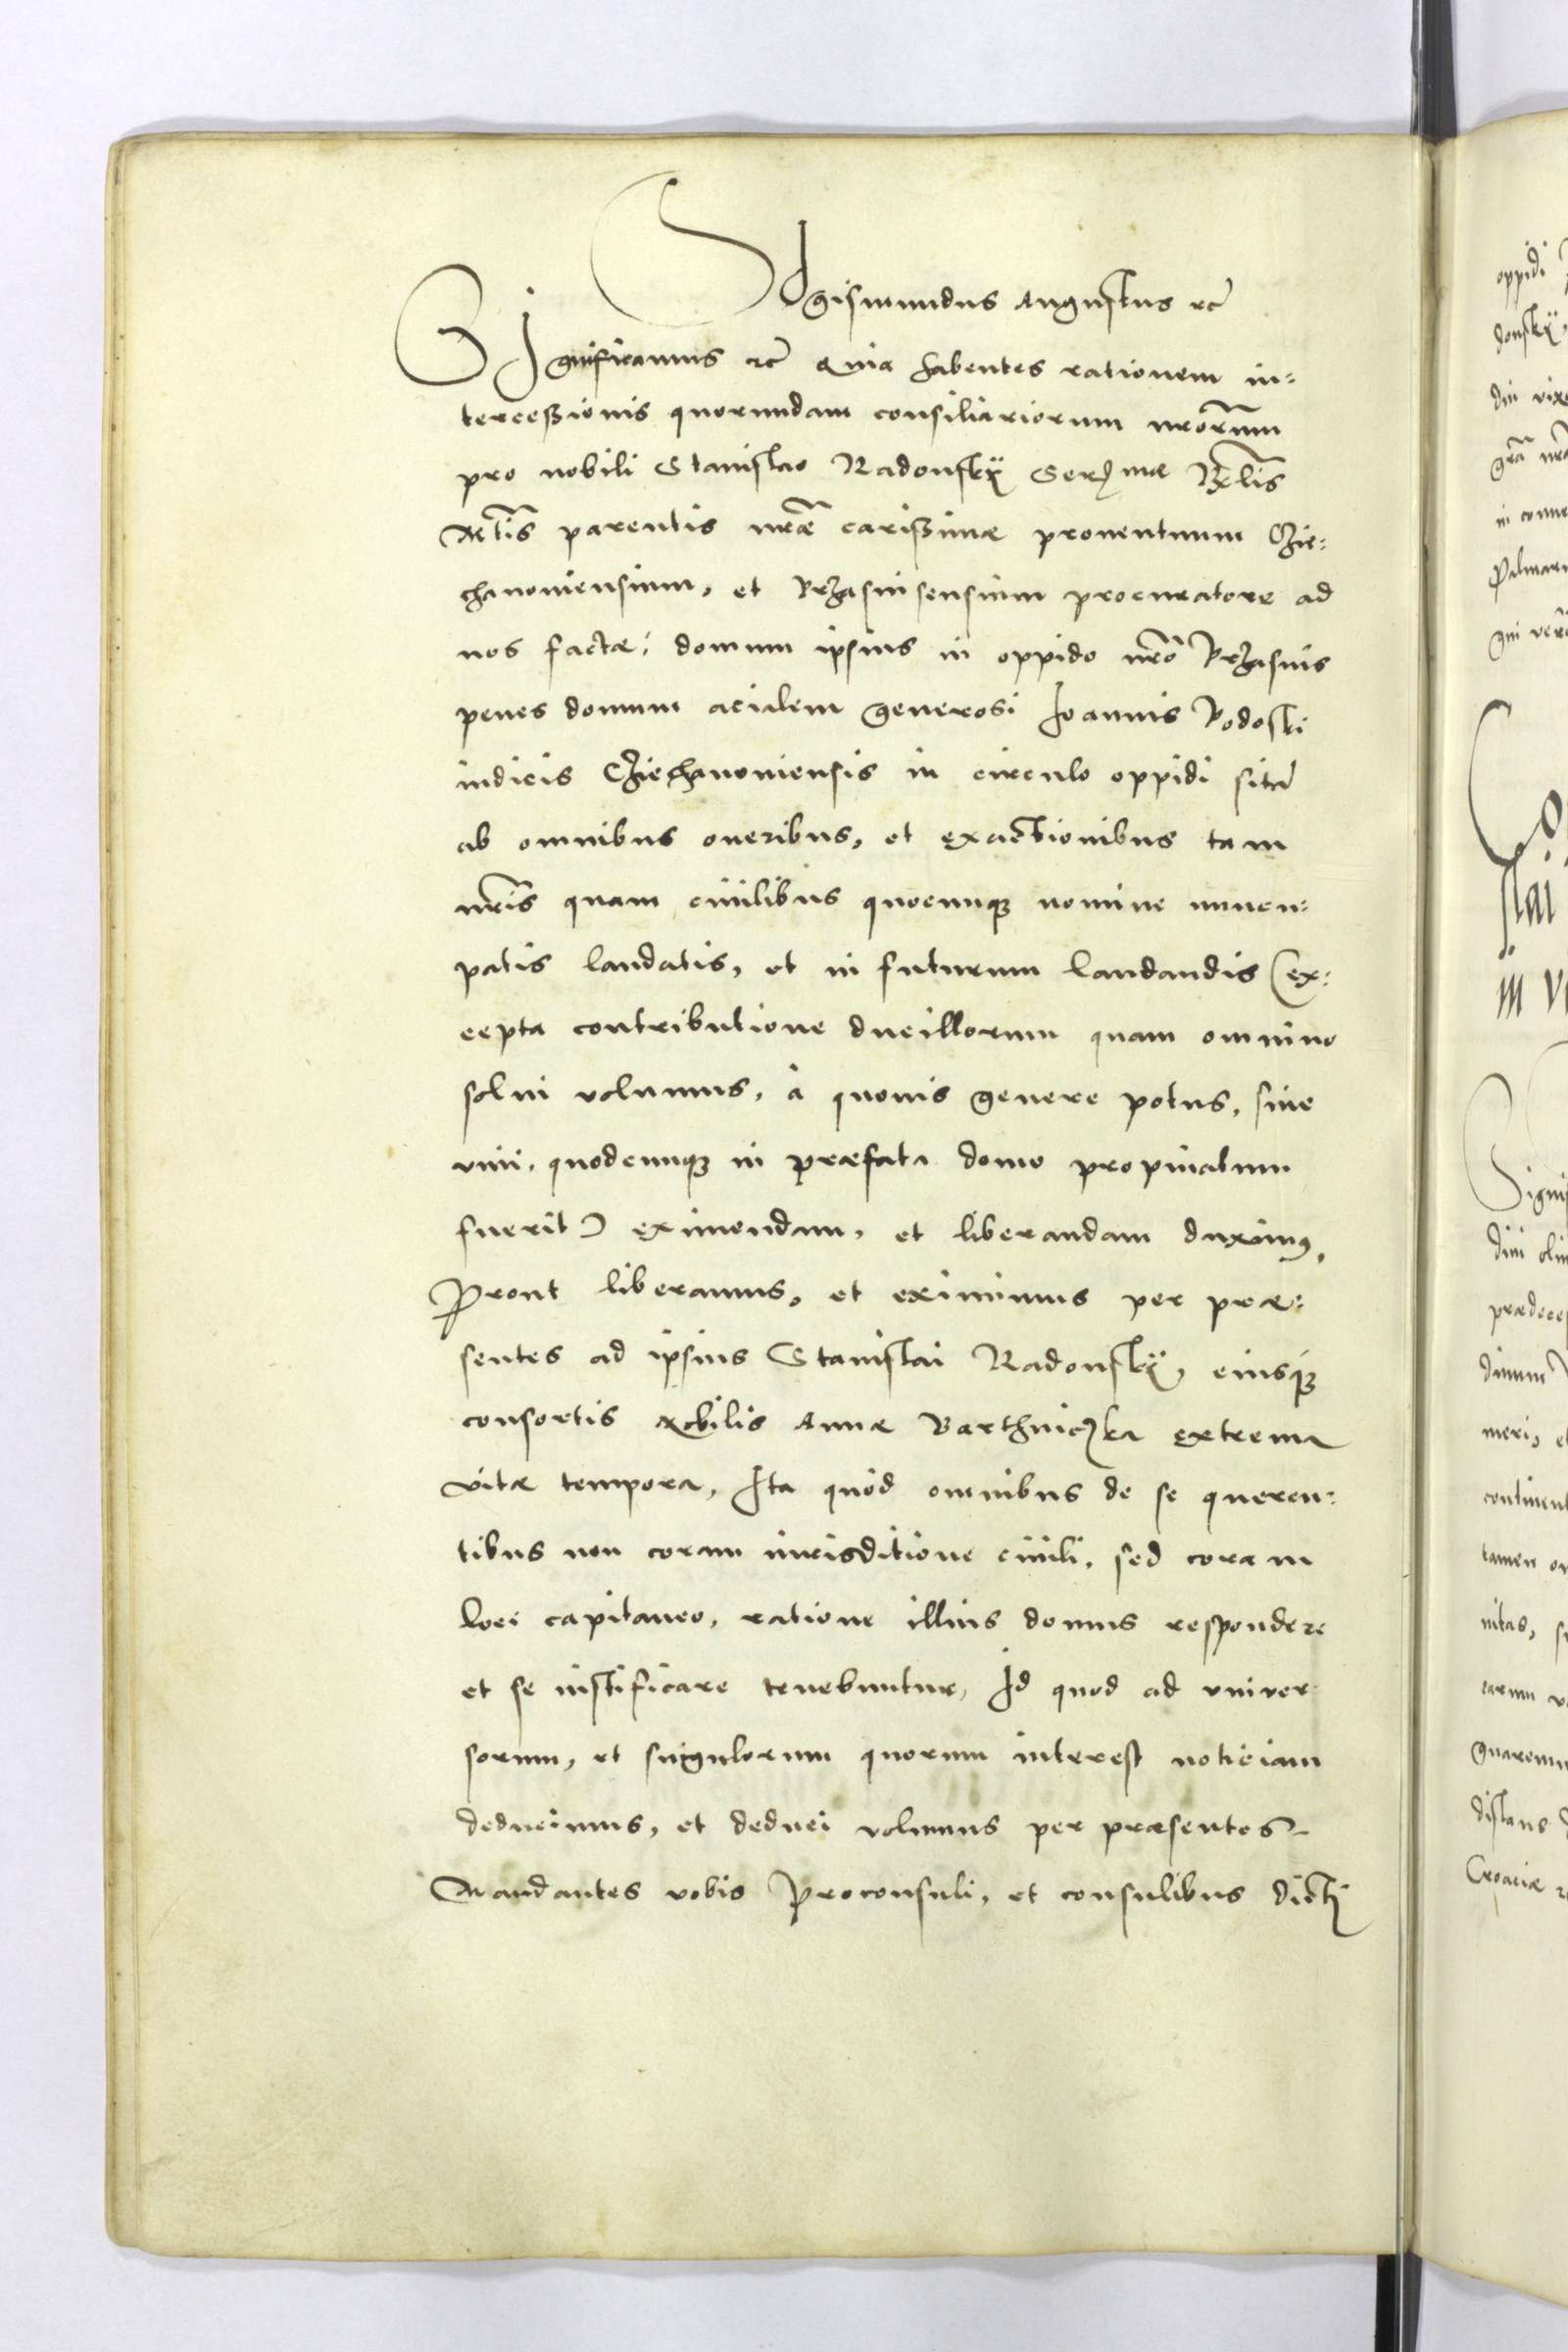 Sigismundus Augustus etc̃
Significamus etc̃ Quia habentes rationem in-
tercessionis quorundam consiliariorum nrõrum
pro nobili Stanislao Radonskÿ Ser: mae Rgĩlis
Mtĩs parentis nrãe carissimae prouentuum Czie-
chanouiensium, et Przasnisensium procuratore ad
nos factae: domum ipsius in oppido nrõ Przasnis
penes domum acialem generosi Ioannis Podoski
iudicis Cziechanouiensis in circulo oppidi sitã
ab omnibus oneribus, et exactionibus tam
nrĩs quam ciuilibus quocunqȝ nomine nuncu-
patis laudatis, et in futurum laudandis (ex-
cepta contributione ducillorum quam omnino
solui volumus, à quouis genere potus, siue
vini, quodcunqȝ in praefata domo propinatum
fuerit) eximendam, et liberandam duximus,
Prout liberamus, et eximimus per prae-
sentes ad ipsius Stanislai Radonskÿ, eiusqȝ
consortis Nobilis Annae Barthniczka extrema
vitae tempora, Ita quòd omnibus de se queren-
tibus non coram iurisditione ciuili, sed coram
loci capitaneo, ratione illius domus respondere
et se iustificare tenebuntur, Id quod ad vniver
sorum, et singulorum quorum interest noticiam
deducimus, et deduci volumus per praesentes
Mandantes vobis Proconsuli, et consulibus dicti
oppidi
donskÿ,
din vixe
grã nrã
in
Palmaru
qui
Co
slai
in
Signi
diui olim
praedece
diuum
meri, et
continent
tamen
nitas,
earum
quarum
distans
Croaciae